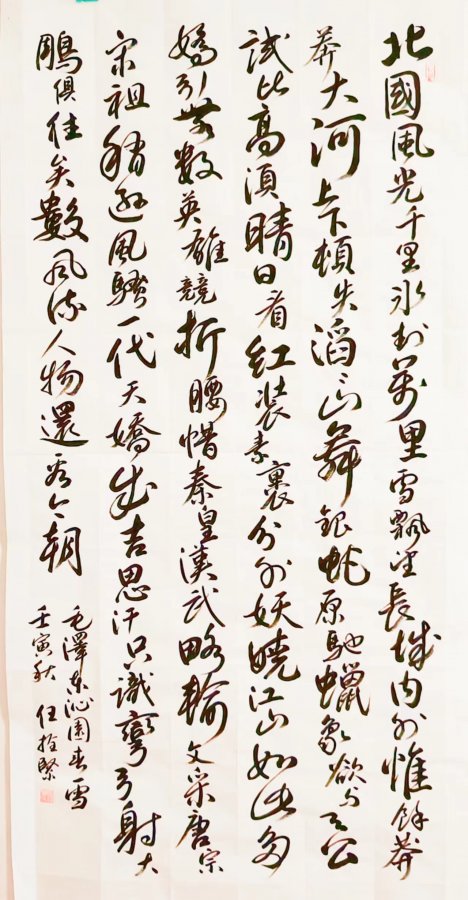 北國風光千里冰封萬里雪飄望長城内外惟餘莽
莽大河上下頓失滔滔山舞銀蛇原馳蠟象欲與天公
試比高須晴日看紅裝素裹分外妖嬈江山如此多
嬌引無數英雄競折腰惜秦皇漢武略輸文采唐宗
宋祖稍遜風騷一代天嬌成吉思汗只識彎弓射大
鵰俱往矣數風流人物還看今朝
毛澤東沁園春雪
壬寅秋 任拴緊